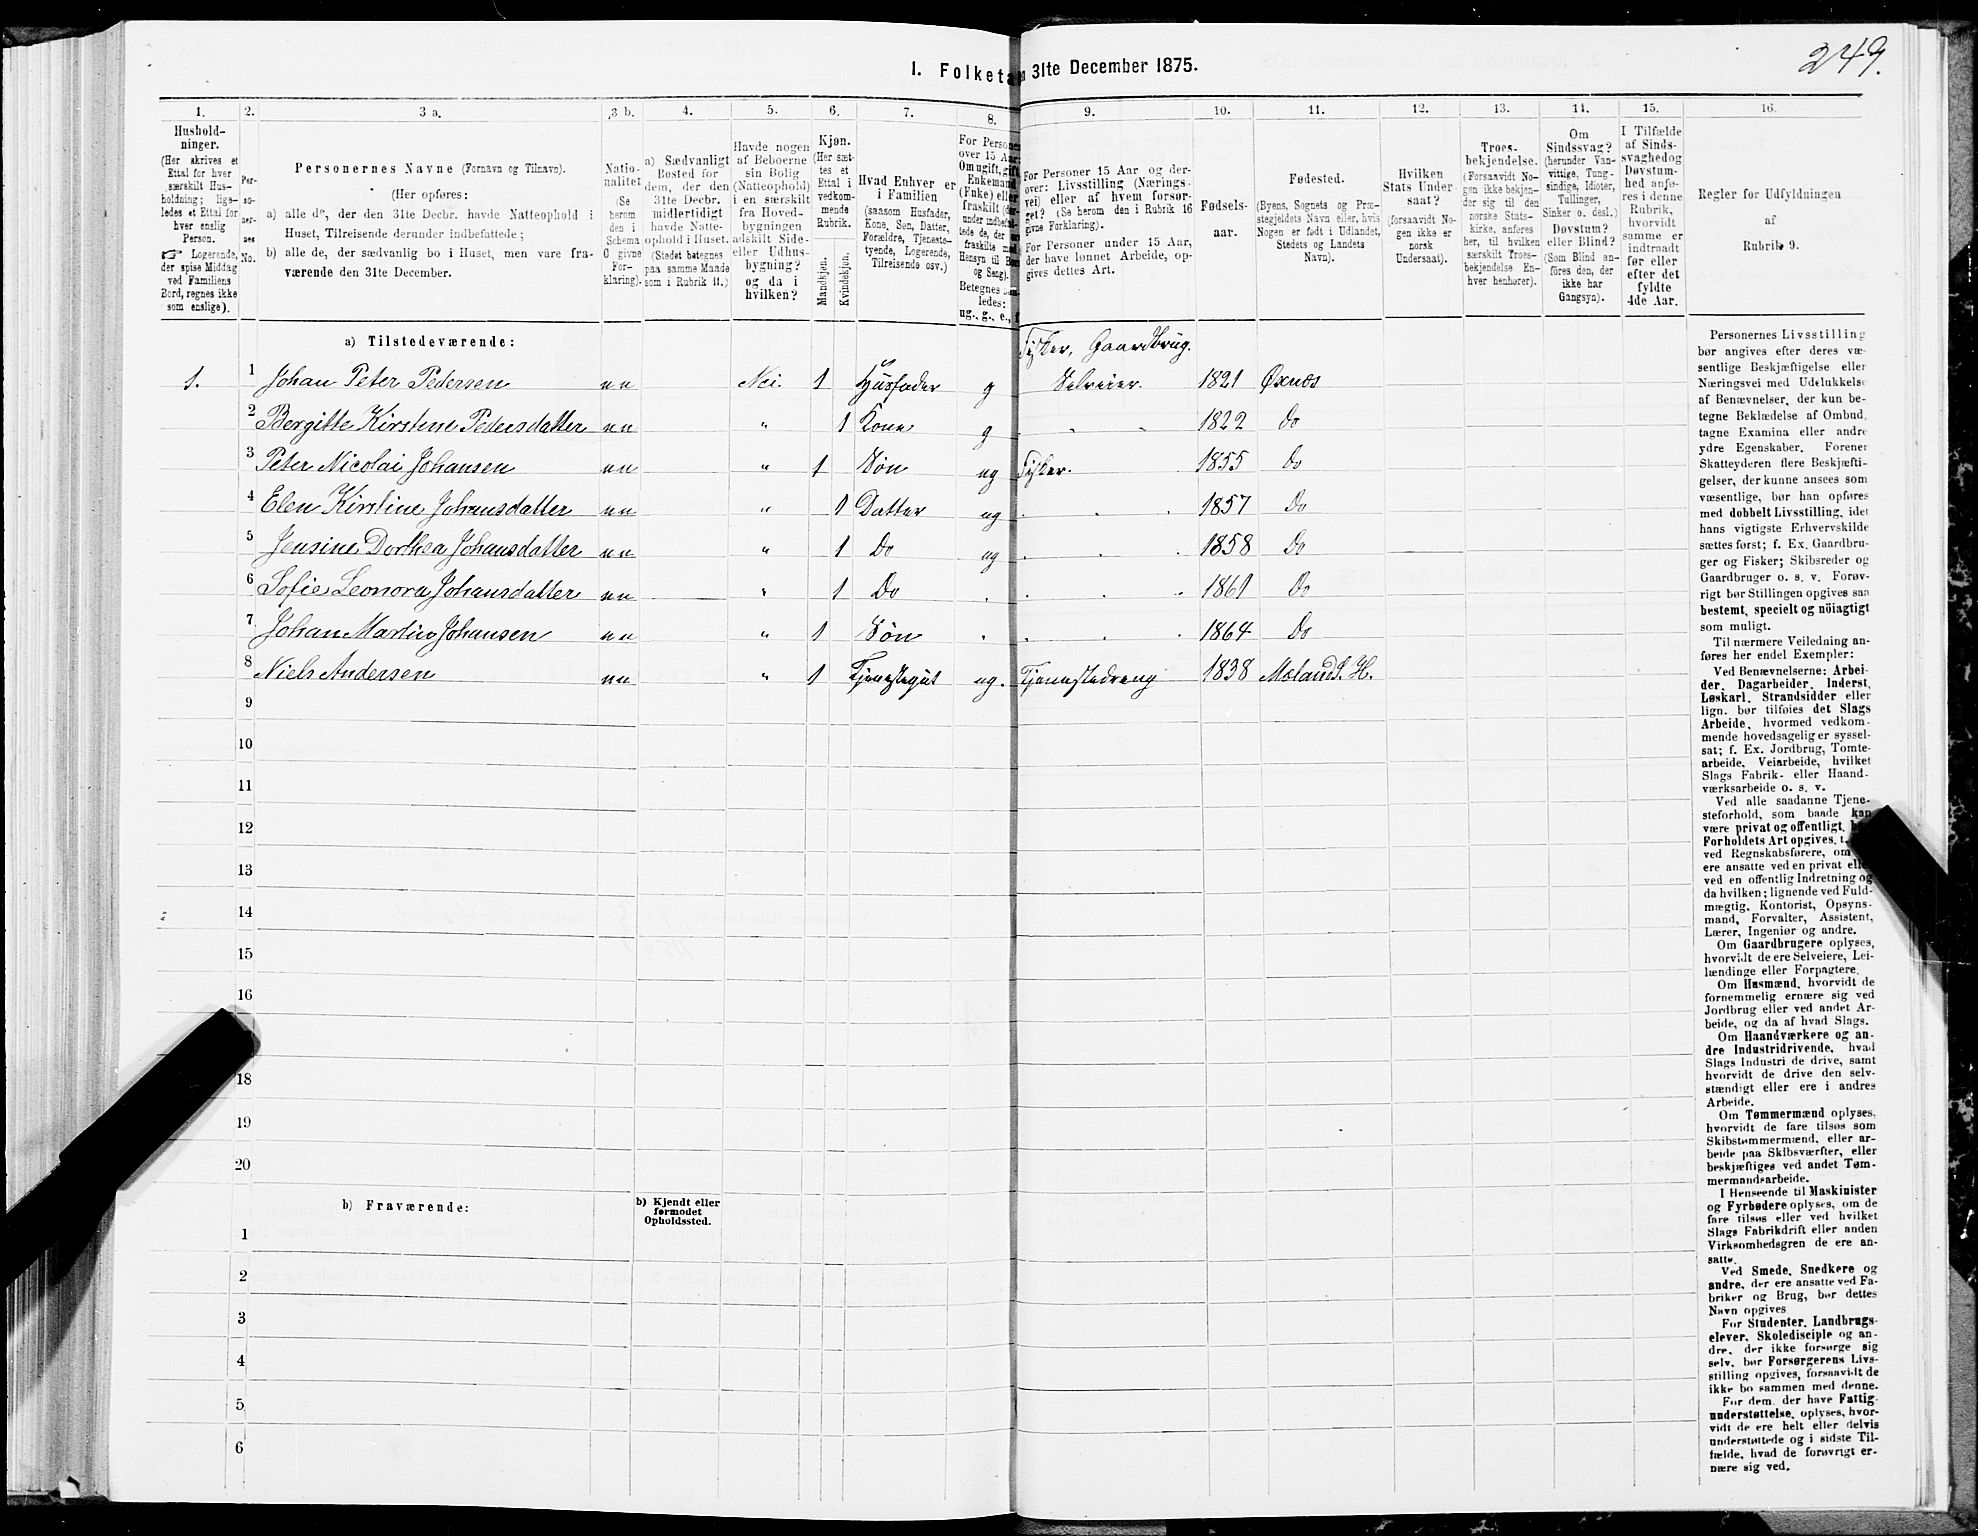 249.
I. Folketa
31te December 1875.
1. 2. 3 a. 3 b. 4. 5. 6. 7. 8. 9. 10. 11. 12. 13. 14. 15. 16.
Hushold-
ninger.
(Her skrives et
Ettal for hver
særskilt Hus-
holdning; lige-
ledes et Ettal for
hver enslig
Person.
☞ Logerende,
der spise Middag
ved Familiens
Bord, regnes ikke
som enslige).
Per-
so-
ner-
nes
No.
Personernes Navne (Fornavn og Tilnavn).
(Her opføres:
a) alle de, der den 31te Decbr. havde Natteophold i
Huset, Tilreisende derunder indbefattede;
b) alle de, der sædvanlig bo i Huset, men vare fra-
værende den 31te December.
Natio-
nalitet
(Se
herom
den i
Schema
6 givne
For-
klaring).
a) Sædvanligt
Bosted for
dem, der den
31te Decbr.
midlertidigt
havde Natte-
ophold i Huset.
(Stedet betegnes
paa samme Maade
som i Rubrik 11.)
Havde nogen
af Beboerne
sin Bolig
(Natteophold)
i en særskilt
fra Hoved-
bygningen
adskilt Side-
eller Udhus-
bygning?
og da i
hvilken?
Kjøn.
(Her sæt-
tes et
Ettal i
vedkom-
mende
Rubrik.
Mandkjøn.
Kvindekjøn.
Hvad Enhver er
i Familien
(saasom Husfader,
Kone, Søn, Datter,
Forældre, Tjeneste-
tyende, Logerende,
Tilreisende osv.)
For Persone
over 15 Aar
Omugift, gift
Enkemand
(Enke) eller
fraskilt (der-
under indbefat-
tede de, der ere
fraskilte med
Hensyn til Bord
og Seng).
Betegnes saa-
ledes:
ug., g., e., f.
For Personer 15 Aar og der-
over: Livsstilling (Nærings-
vei) eller af hvem forsør-
get? (Se herom den i Rubrik 16
givne Forklaring).
For Personer under 15 Aar,
der have lønnet Arbeide, op-
gives dettes Art.
Fødsels-
aar.
Fødested.
(Byens, Sognets og Præ-
stegjeldets Navn eller, hvis
Nogen er født i Udlandet,
Stedets og Landets
Navn).
Hvilken
Stats Under-
saat?
(forsaavidt No-
gen ikke er
norsk
Undersaat).
Troes-
bekjendelse.
(Forsaavidt No-
gen ikke bekjen-
der sig til den
norske Stats-
kirke, anføres
her, til hvilken
særskilt Troes-
bekjendelse En-
hver henhører).
Om
Sindssvag?
(herunder Van-
vittige, Tung-
sindige, Idioter,
Tullinger,
Sinker o. desl.)
Døvstum?
eller Blind?
(Som Blind an-
føres den, der
ikke har
Gangsyn).
I Tilfælde
af Sinds-
svaghedog
Døvstum-
hed anfø-
res i denne
Rubrik,
hvorvidt
samme er
indtraadt
før eller
efter det
fyldte
4de Aar.
Regler for Udfyldningen
af
Rubrik 9.
a) Tilstedeværende:
Fisker, Gaardbrug.
1. 1 Johan Peter Pedersen nn Nei. 1 Husfader g Selveier. 1821 Øxnæs
2 Bergitte Kirstine Pedersdatter nn " 1 Kone g 1822 Do
3 Peter Nicolai Johansen nn " 1 Søn ug Fisker. 1855 Do
4 Elen Kirstine Johansdatter nn " 1 Datter ug 1857 Do
5 Jensine Dorthea Johansdatter nn " 1 Do ug 1858 Do
6 Sofie Leonora Johansdatter nn " 1 Do 1861 Do
7 Johan Martin Johansen nn " 1 Søn 1864 Do
8 Niels Andersen nn " 1 Tjenestegut ug. Tjenestedreng 1838 H.
9
10
11
12
13
14
15
16
18
19
20
b) Fraværende:
b) Kjendt eller
formodet
Opholdssted.
1
2
3
4
5
6
Personernes Livsstilling
bør angives efter deres væ-
sentlige Beskjæftigelse eller
Næringsvei med Udelukkelse
af Benævnelser, der kun be-
tegne Beklædelse af Ombud,
tagne Examina eller andre
ydre Egenskaber. Forener
Skatteyderen flere Beskjæfti-
gelser, der kunne ansees som
væsentlige, bør han opføres
med dobbelt Livsstilling, idet
hans vigtigste Erhvervskilde
sættes først; f. Ex. Gaardbru-
ger og Fisker; Skibsreder og
Gaardbruger o. s. v. Forøv-
rigt bør Stillingen opgives saa
bestemt, specielt og nöiagtigt
som muligt.
Til nærmere Veiledning an-
føres her endel Exempler:
Ved Benævnelserne: Arbei-
der, Dagarbeider, Inderst,
Løskarl, Strandsidder eller
lign. bør tilføies det Slags
Arbeide, hvormed vedkom-
mende hovedsagelig er syssel-
sat; f. Ex. Jordbrug, Tomte-
arbeide, Veiarbeide, hvilket
Slags Fabrik- eller Haand-
værksarbeide o. s. v.
Ved alle saadanne Tjene-
steforhold, som baade kan
være privat og offentligt,
Forholdets Art opgives,
ved Regnskabsførere, om
ere ansatte ved en privat eller
ved en offentlig Indretning og
da hvilken; lignende ved Fuld-
mægtig, Kontorist, Opsyns-
mand, Forvalter, Assistent,
Lærer, Ingeniør og andre.
Om Gaardbrugere oplyses,
hvorvidt de ere Selveiere, Lei-
lændinge eller Forpagtere.
Om Husmænd, hvorvidt de
fornemmelig ernære sig ved
Jordbrug eller ved andet Ar-
beide, og da af hvad Slags.
Om Haandværkere og an-
dre Industridrivende, hvad
Slags Industri de drive, samt
hvorvidt de drive den selv-
stændigt eller ere i andres
Arbeide.
Om Tømmermænd oplyses,
hvorvidt de fare tilsøs som
Skibstømmermænd, eller ar-
beide paa Skibsværfter, eller
beskjæftiges ved andet Tøm-
mermandsarbeide.
I Henseende til Maskinister
og Fyrbødere oplyses, om de
fare tilsøs eller ved hvilket
Slags Fabrikdrift eller anden
Virksomhedsgren de ere an-
satte.
Ved Smede, Snedkere og
andre, der ere ansatte ved Fa-
briker og Brug, bør dettes
Navn opgives
For Studenter, Landbrugs-
elever, Skoledisciple og an-
dre, der ikke forsørge sig
selv, bør Forsørgerens Livs-
stilling opgives, forsaavidt de
ikke bo sammen med denne.
For dem, der have Fattig-
understøttelse, oplyses, hvor-
vidt de ere helt eller delvis
understøttede og i sidste Til-
fælde, hvad de forøvrigt er-
nære sig ved.